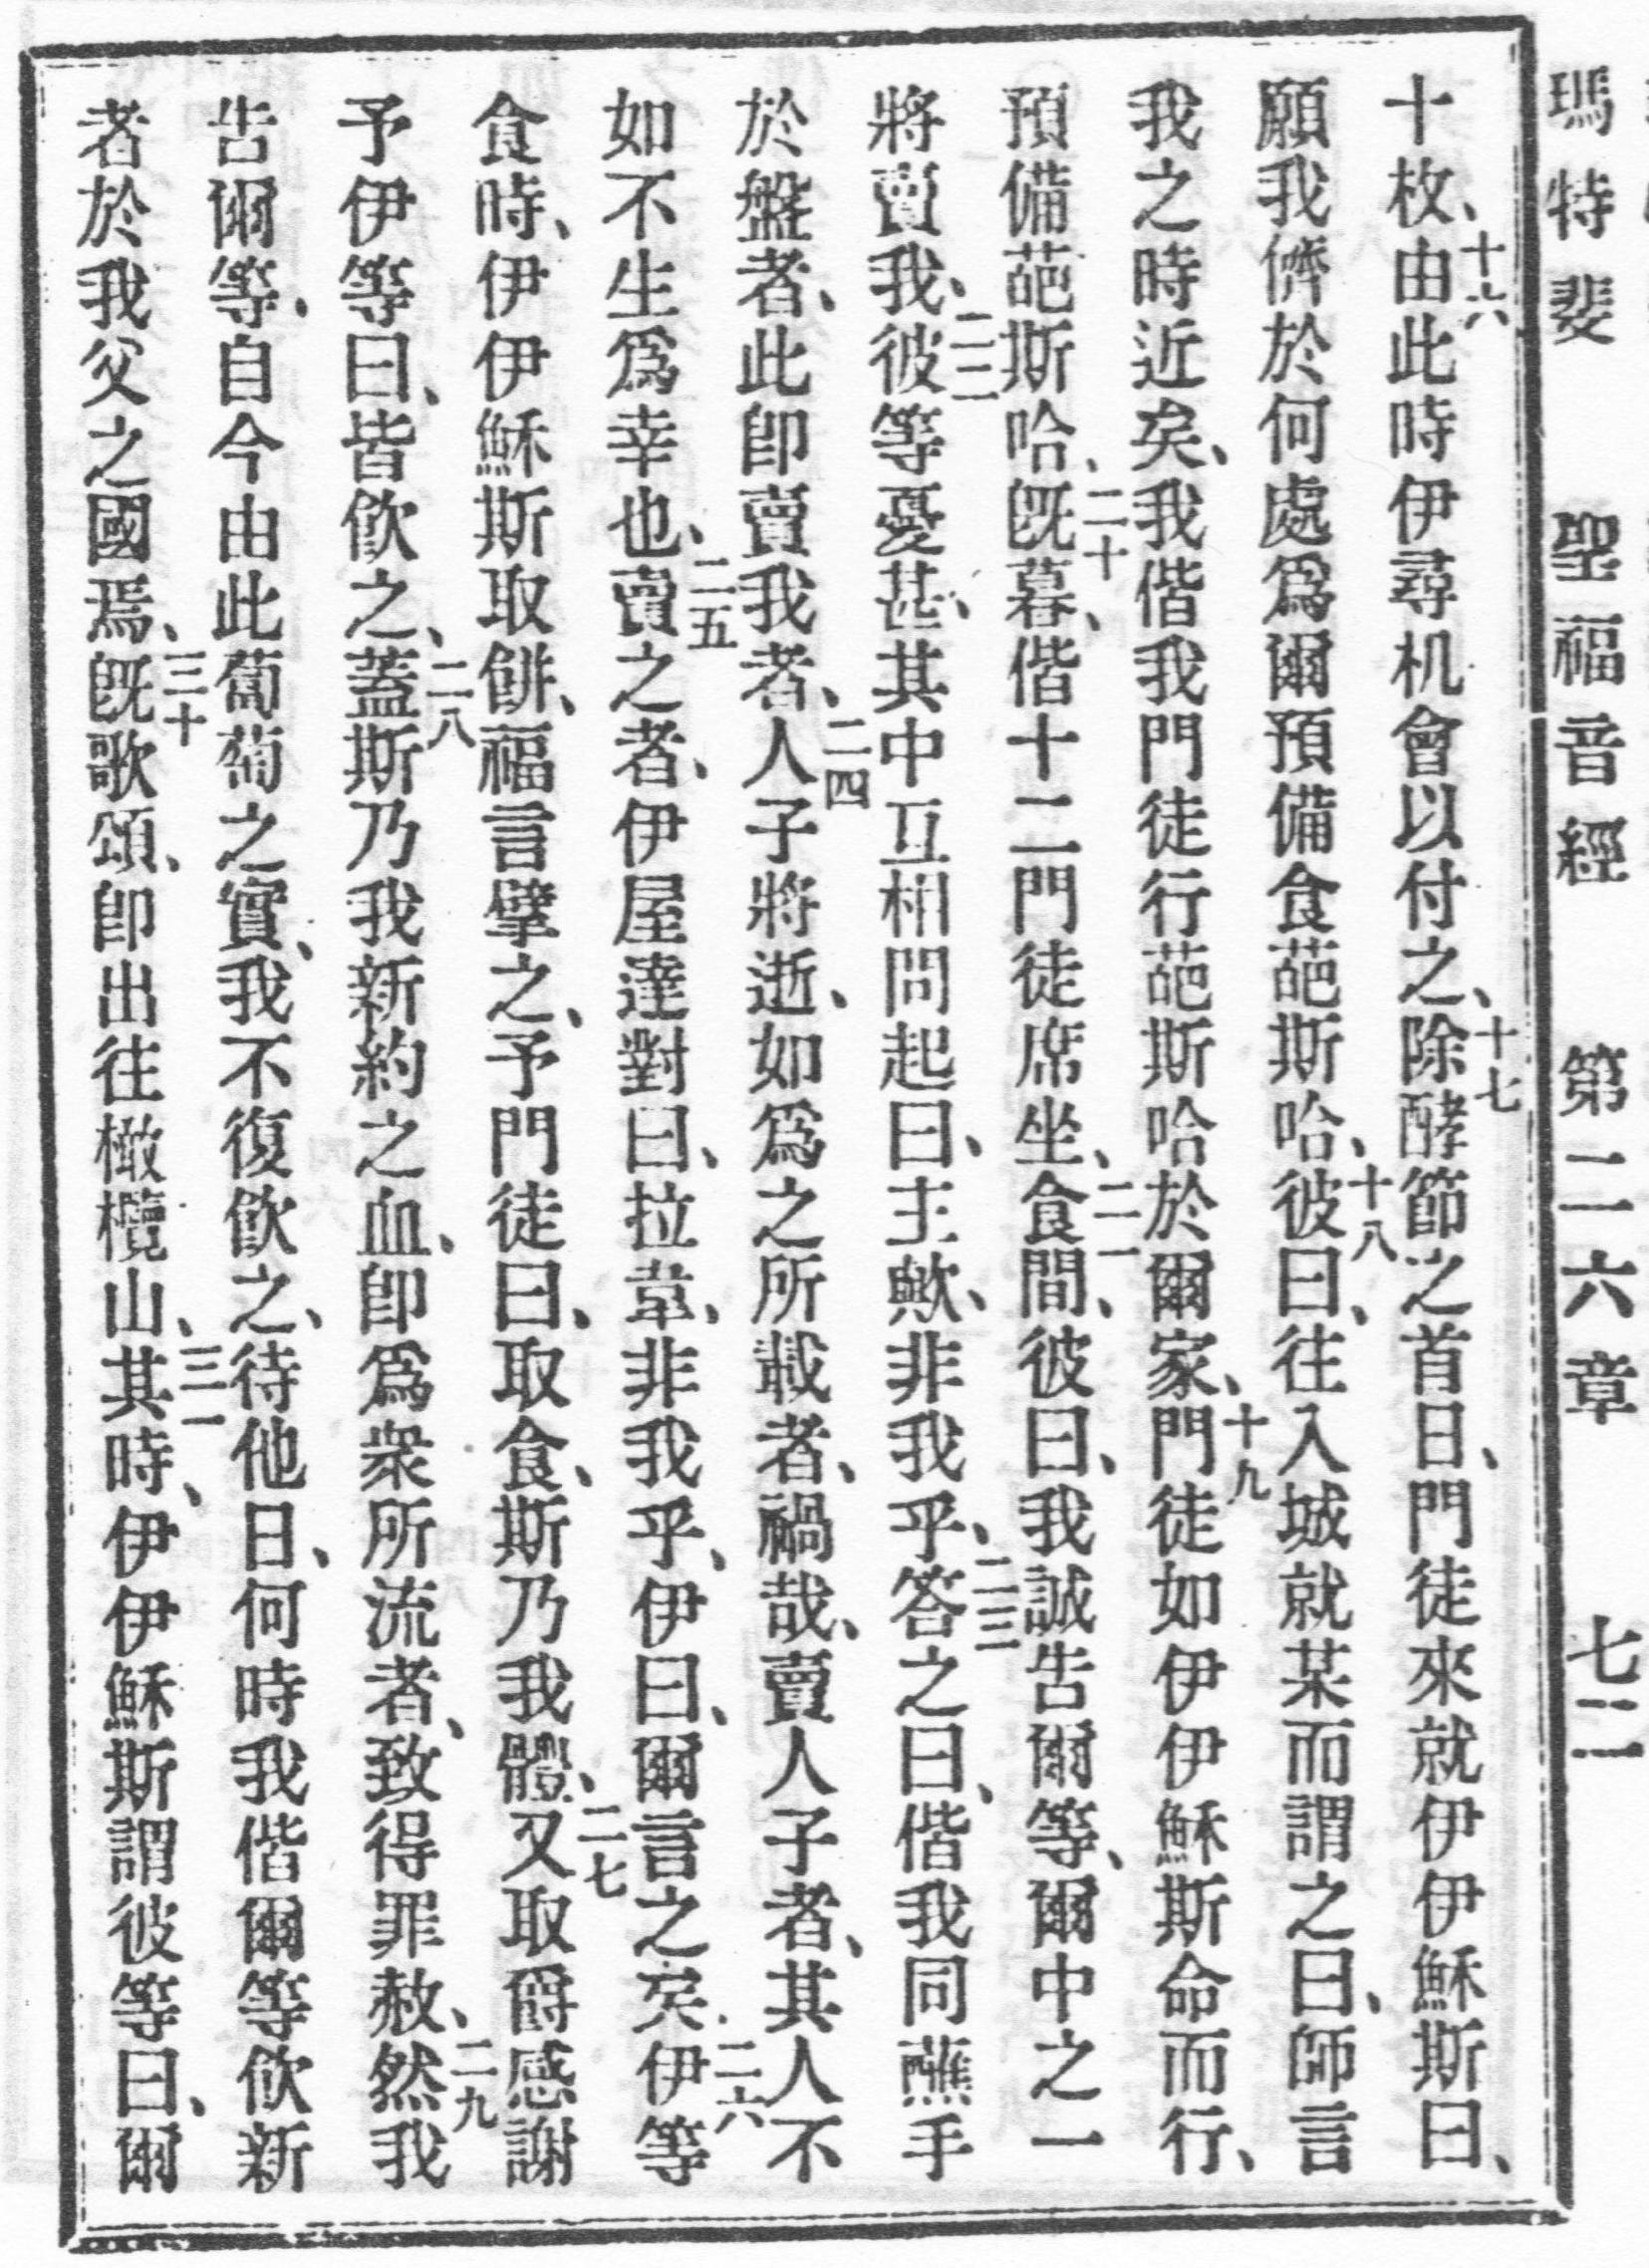 瑪特斐 聖福音經 第二六章 七二
十枚、十六由此時伊尋机會以付之、十七除酵節之首日、門徒來就伊伊穌斯曰、
願我儕於何處爲爾預備食葩斯哈、十八彼曰、往入城就某而謂之曰、師言
我之時近矣、我偕我門徒行葩斯哈於爾家、十九門徒如伊伊穌斯命而行、
預備葩斯哈、二十旣暮、偕十二門徒席坐、二一食間、彼曰、我誠告爾等、爾中之一
將賣我、二二彼等憂甚、其中互相問起曰、主歟、非我乎、二三答之曰、偕我同蘸手
於盤者、此卽賣我者、二四人子將逝、如爲之所載者、禍哉、賣人子者、其人不
如不生爲幸也、二五賣之者、伊屋達對曰、拉韋、非我乎、伊曰、爾言之矣、二六伊等
食時、伊伊穌斯取餠、福言擘之、予門徒曰、取食、斯乃我體、二七又取爵感謝
予伊等曰、皆飮之、二八蓋斯乃我新約之血、卽爲衆所流者、致得罪赦、二九然我
告爾等、自今由此葡萄之實、我不復飮之、待他日、何時我偕爾等飮新
者於我父之國焉、三十旣歌頌、卽出往橄欖山、三一其時、伊伊穌斯謂彼等曰、爾